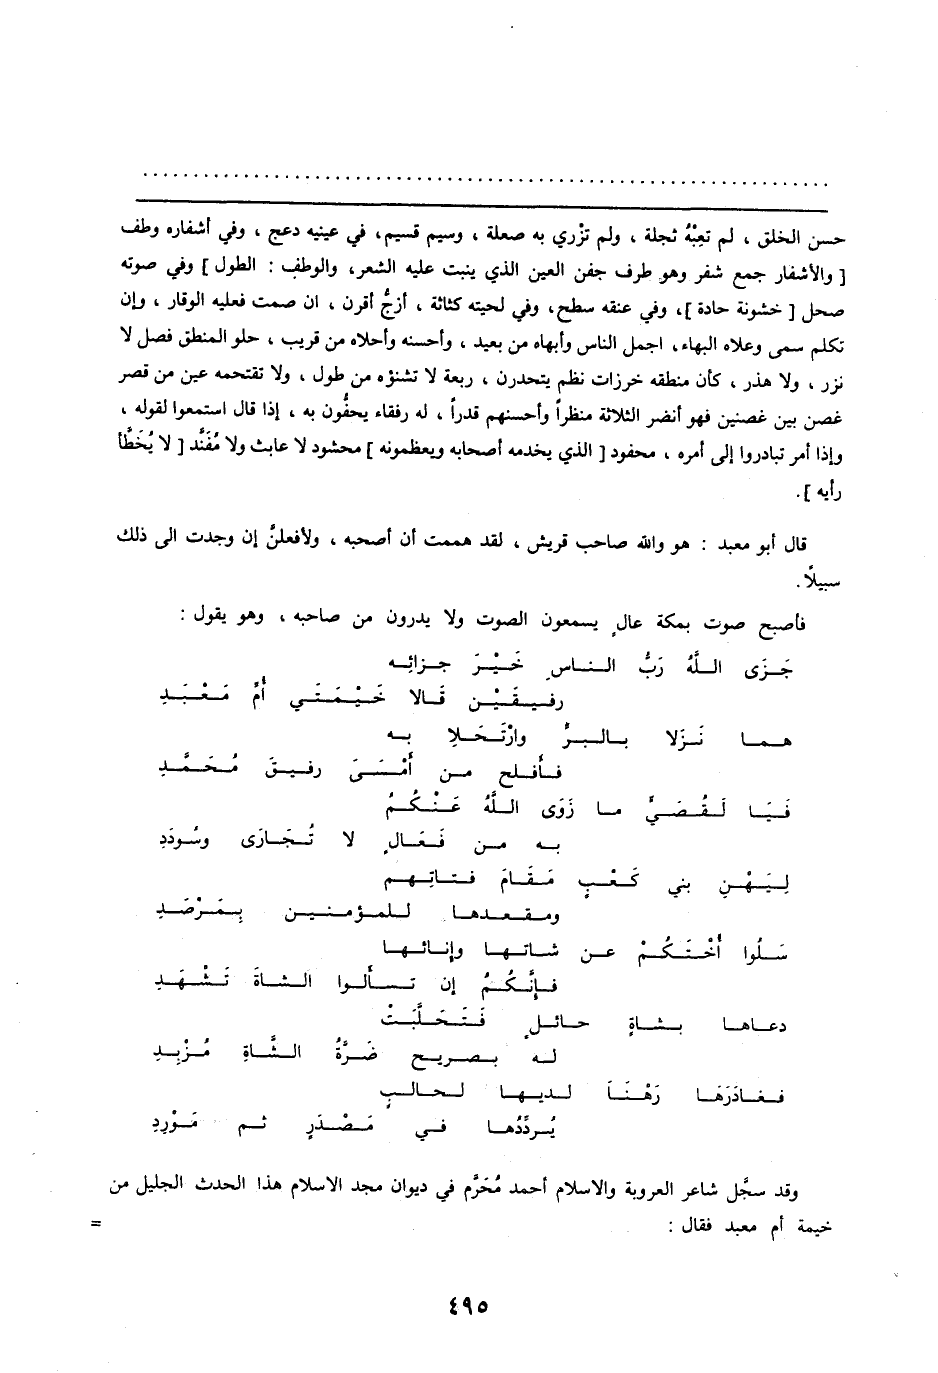 حسن الخلق ، لم تعِبْهُ ثجلة ، ولم تزْري به صعلة ، وسيم قسيم، في عينيه دعج ، وفي أشفاره وطف
[ والأشفار جمع شفر وهو طرف جفن العين الذي ينبت عليه الشعر، والوطف : الطول ] وفي صوته
صحل [ خشونة حادة ]، وفي عنقه سطح، وفي لحيته كثاثة ، أزجُّ أقرن ، ان صمت فعليه الوقار ، وإن
تكلم سمى وعلاه البهاء، اجمل الناس وأبهاه من بعيد ، وأحسنه وأحلاه من قريب ، حلو المنطق فصل لا
نزر ، ولا هذر ، كأن منطقه خرزات نظم يتحدرن ، ربعة لا تشنؤه من طول ، ولا تقتحمه عين من قصر
غصن بين غصنين فهو أنضر الثلاثة منظراً وأحسنهم قدراً ، له رفقاء يحفُّون به ، إذا قال استمعوا لقوله ،
وإذا أمر تبادروا إلى أمره ، محفود [ الذي يخدمه أصحابه ويعظمونه ] محشود لا عابث ولا مُفَنَّد [ لا يُخَطَّأ
رأيه ].
قال أبو معبد : هو والله صاحب قريش ، لقد هممت أن أصحبه ، ولأفعلنَّ إن وجدت الى ذلك
سبيلاً.
فأصبح صوت بمكة عالٍ يسمعون الصوت ولا يدرون من صاحبه ، وهو يقول :
جَزَى اللَّهُ رَبُّ الناسِ خَيْرَ جزائه
رفيقَيْن قَالا خَيْمَتَي أُمِّ مَعْبَدِ
هما نَزَلا بالبرِّ وارْتَحَلا به
فأفلح من أَمْسَى رفيقَ مُحَمَّدِ
فَيَا لَقُصَيٍّ ما زَوَى اللَّهُ عَنْكُمُ
به من فَعَالٍ لا تُجَارَى وسُودَدِ
لِيَهْنِ بني كَعْبٍ مَقَامَ فتاتِهم
ومقعدها للمؤمنين بِمَرْصَدِ
سَلُوا أُخْتَكُمْ عن شاتها وإنائها
فإنَّكُمُ إن تسألوا الشاةَ تَشْهَدِ
دعاها بشاةٍ حائلٍ فَتَحَلَّبَتْ
له بصريحٍ ضَرَّةُ الشَّاةِ مُزْبِدِ
فغادَرَهَا رَهْنَاً لديها لحالبٍ
يُردِّدُها في مَصْدَرٍ ثم مَوْرِدِ
وقد سجَّل شاعر العروبة والاسلام أحمد مُحَرَّم في ديوان مجد الاسلام هذا الحدث الجليل من
خيمة أم معبد فقال : =
٤٩٥